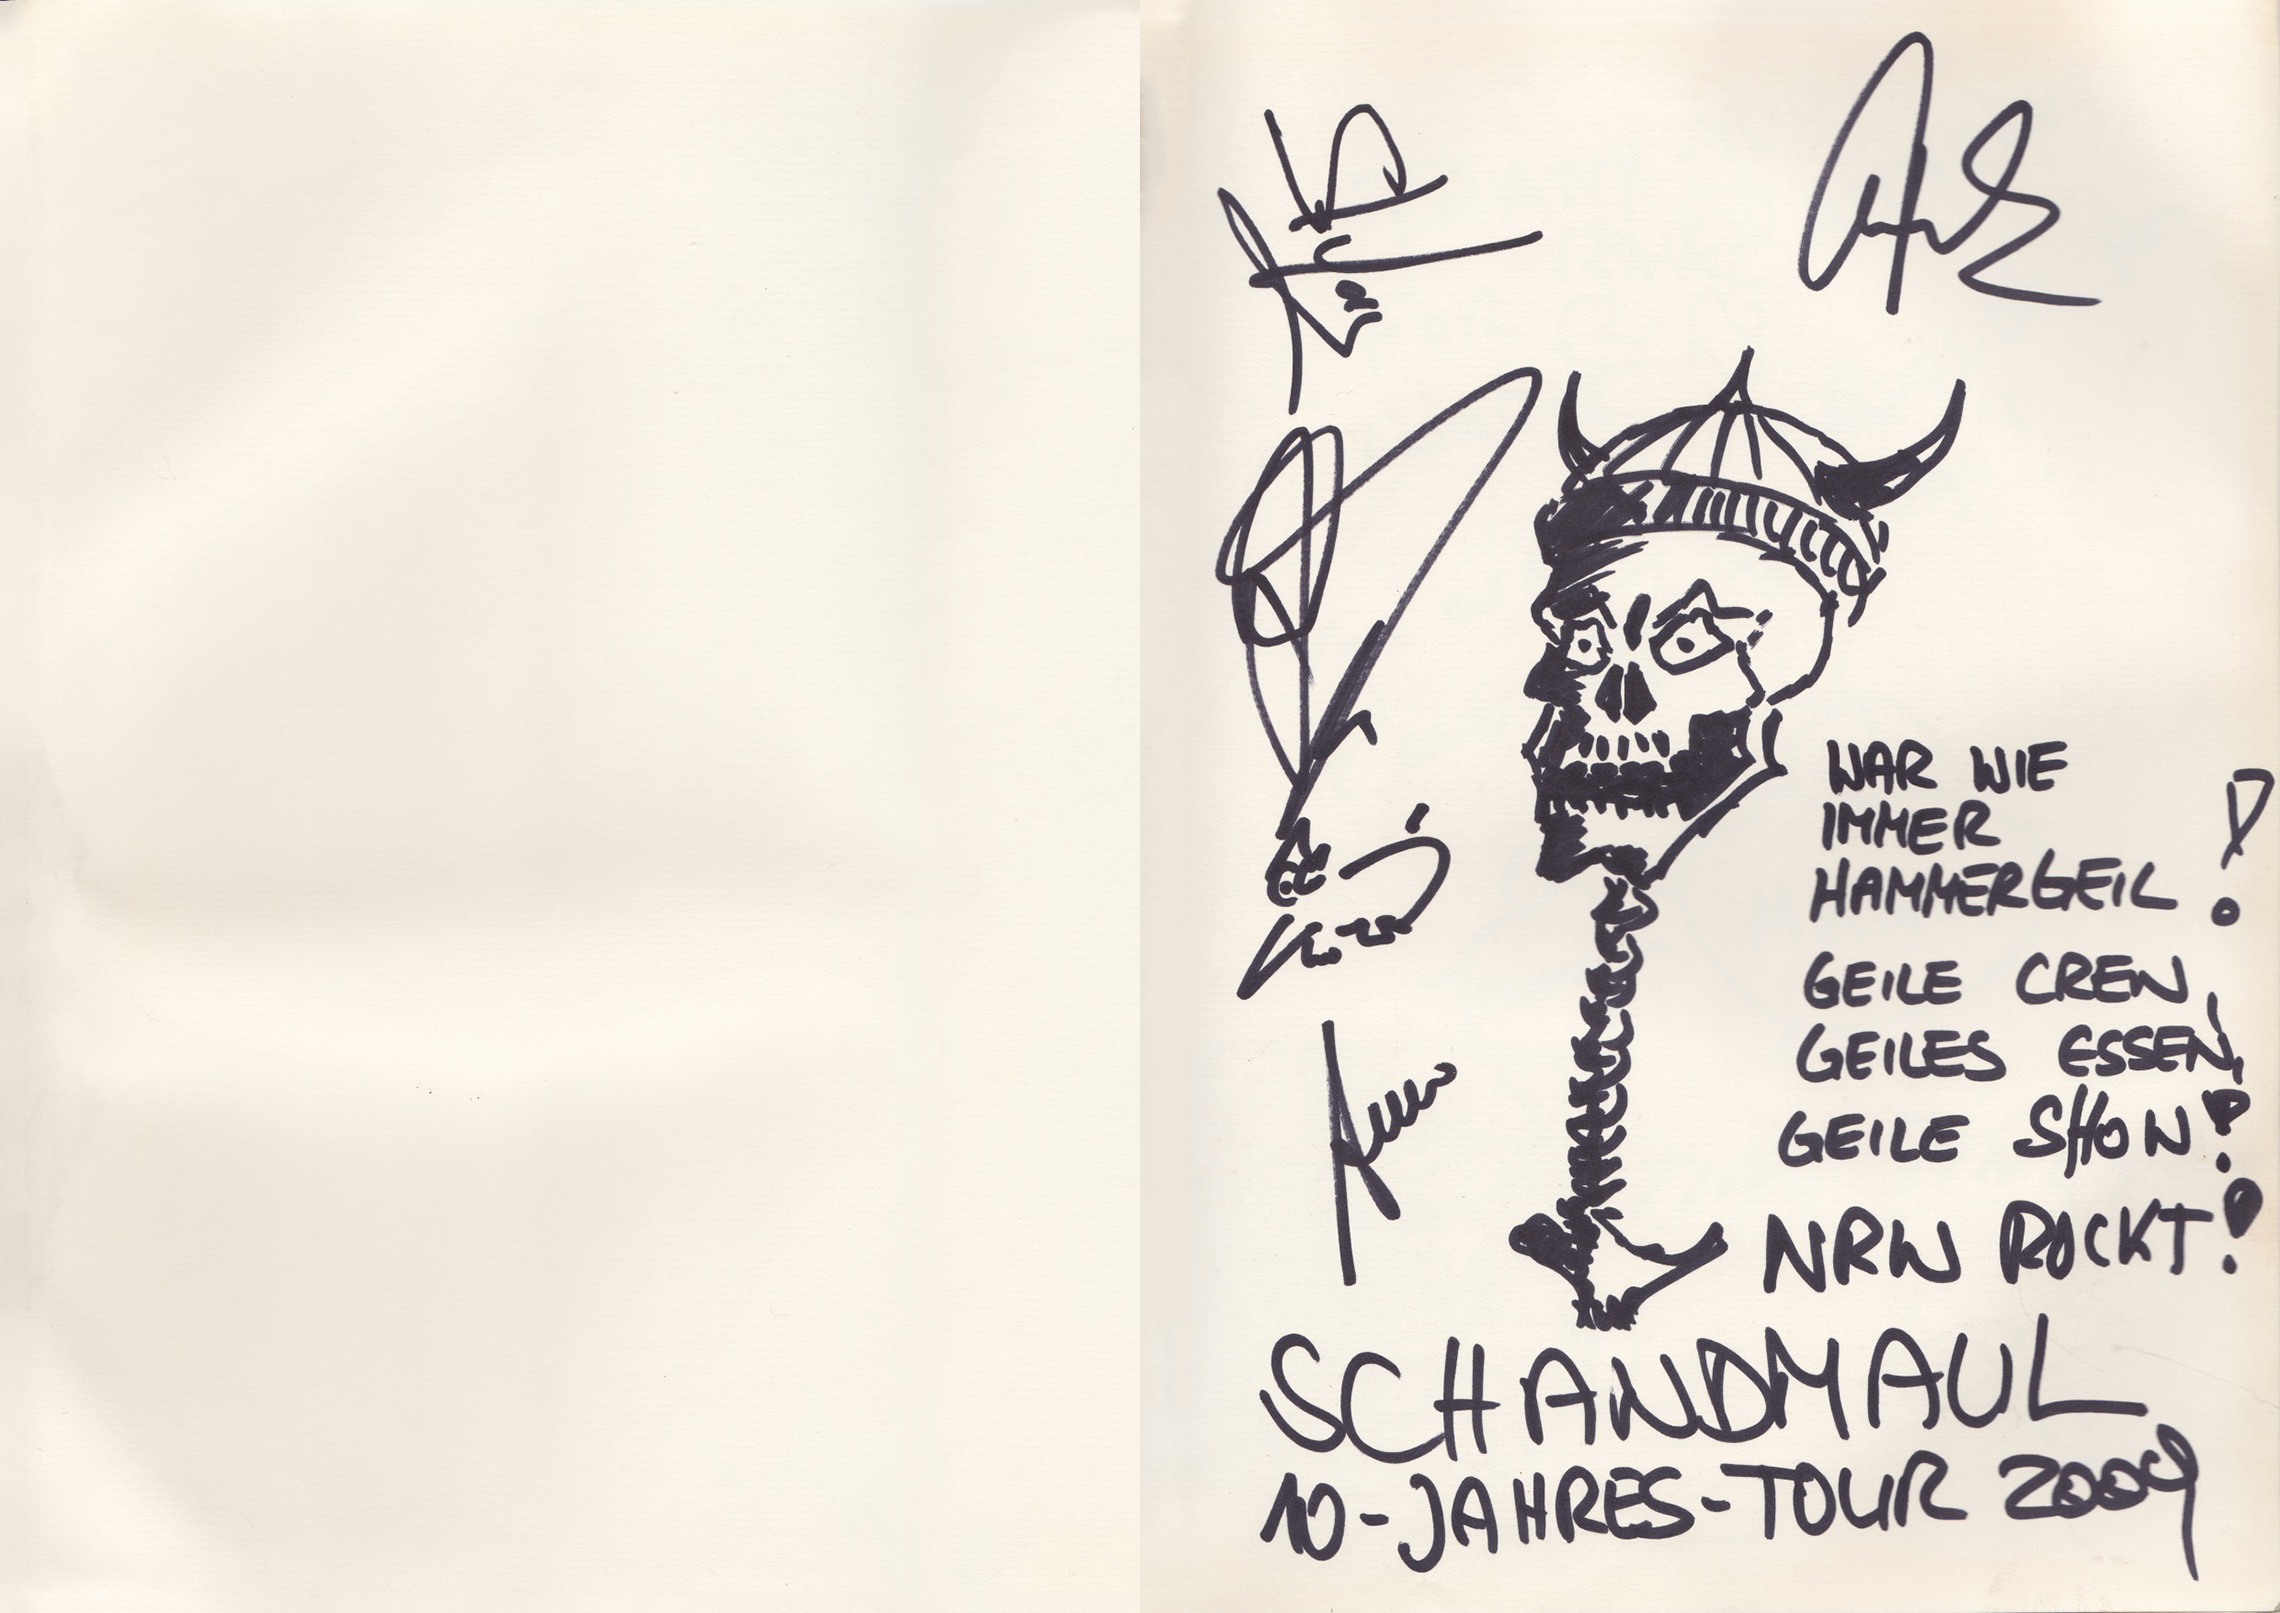 WAR WIE
IMMER
HAMMERGEIL!
GEILE CREW,
GEILES ESSEN,
GEILE SHOW!
NRW ROCKT!
SCHANDMAUL
10-JAHRES-TOUR 2009